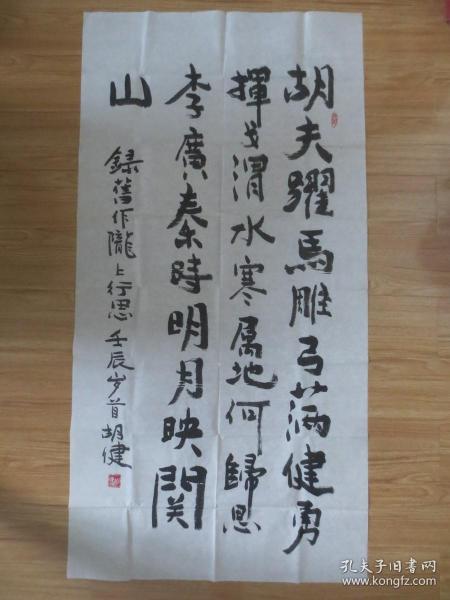 胡夫躍馬雕弓滿健勇
揮戈渭水寒属地何歸思
李廣秦時明月映関
山
録舊作隴上行思壬辰岁首胡健
孔夫子旧书网
www.kongfz.com